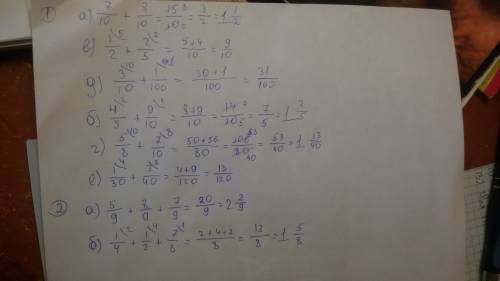 ① а) 7/10 + 8/10 = 15/10 = 3/2 = 1 1/2
в) 1/2 + 2/5 = 5+4/10 = 9/10
д) 3/10 + 1/100 = 30+1/100 = 31/100
б) 4/5 + 9/10 = 8+9/10 = 7/5 = 1 2/5
г) 5/8 + 7/10 = 50+56/80 = 106/80 = 53/40 = 1 13/40
е) 1/30 + 3/40 = 4+9/120 = 13/120
② а) 5/9 + 8/9 + 7/9 = 20/9 = 2 2/9
б) 1/4 + 1/2 + 7/8 = 2+4+7/8 = 13/8 = 1 5/8